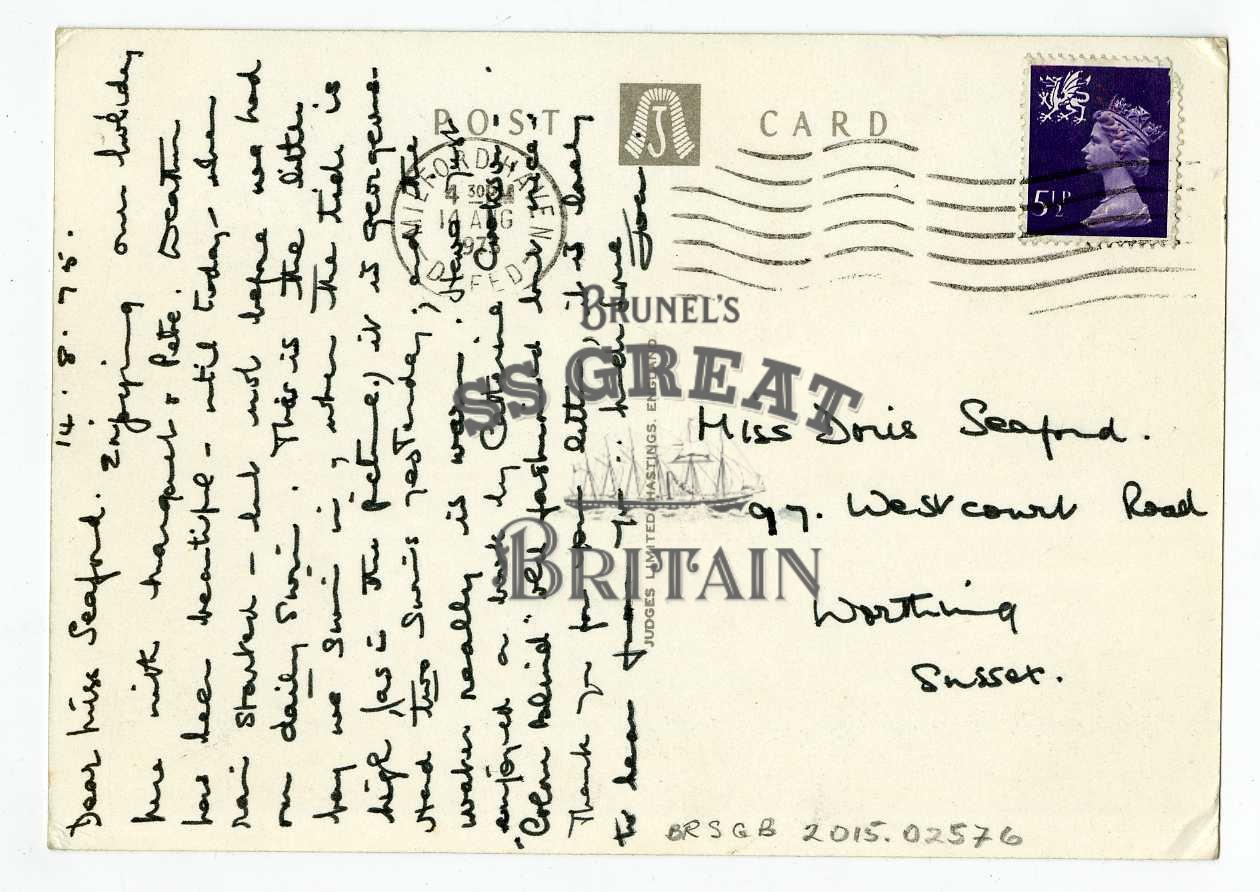 14.8.75.
Dear Miss Seaford. Enjoying our holiday
here with Margaret & Pete. Weather
has been beautiful - until today, when
rain started - but not before we had
our daily swim. This is the little
bay we swim in, when the tide is
high (as in the picture) it is gorgeous.
Had two swims yesterday, and the
water really is warm. Have just
enjoyed a book by Catherine Cookson.
"Colour Blind" old fashioned but nice.
Thank you for your letter, it is lovely
to hear from you. Much love
POST CARD
J
MILFORD HAVEN
4 30PM
14 AUG
1975
DYFED
5½P
JUDGES LIMITED, HASTINGS, ENGLAND.
Miss Doris Seaford.
97. Westcourt Road
Worthing
Sussex.
BRUNEL'S
SS GREAT
BRITAIN
BRSGB 2015.02576